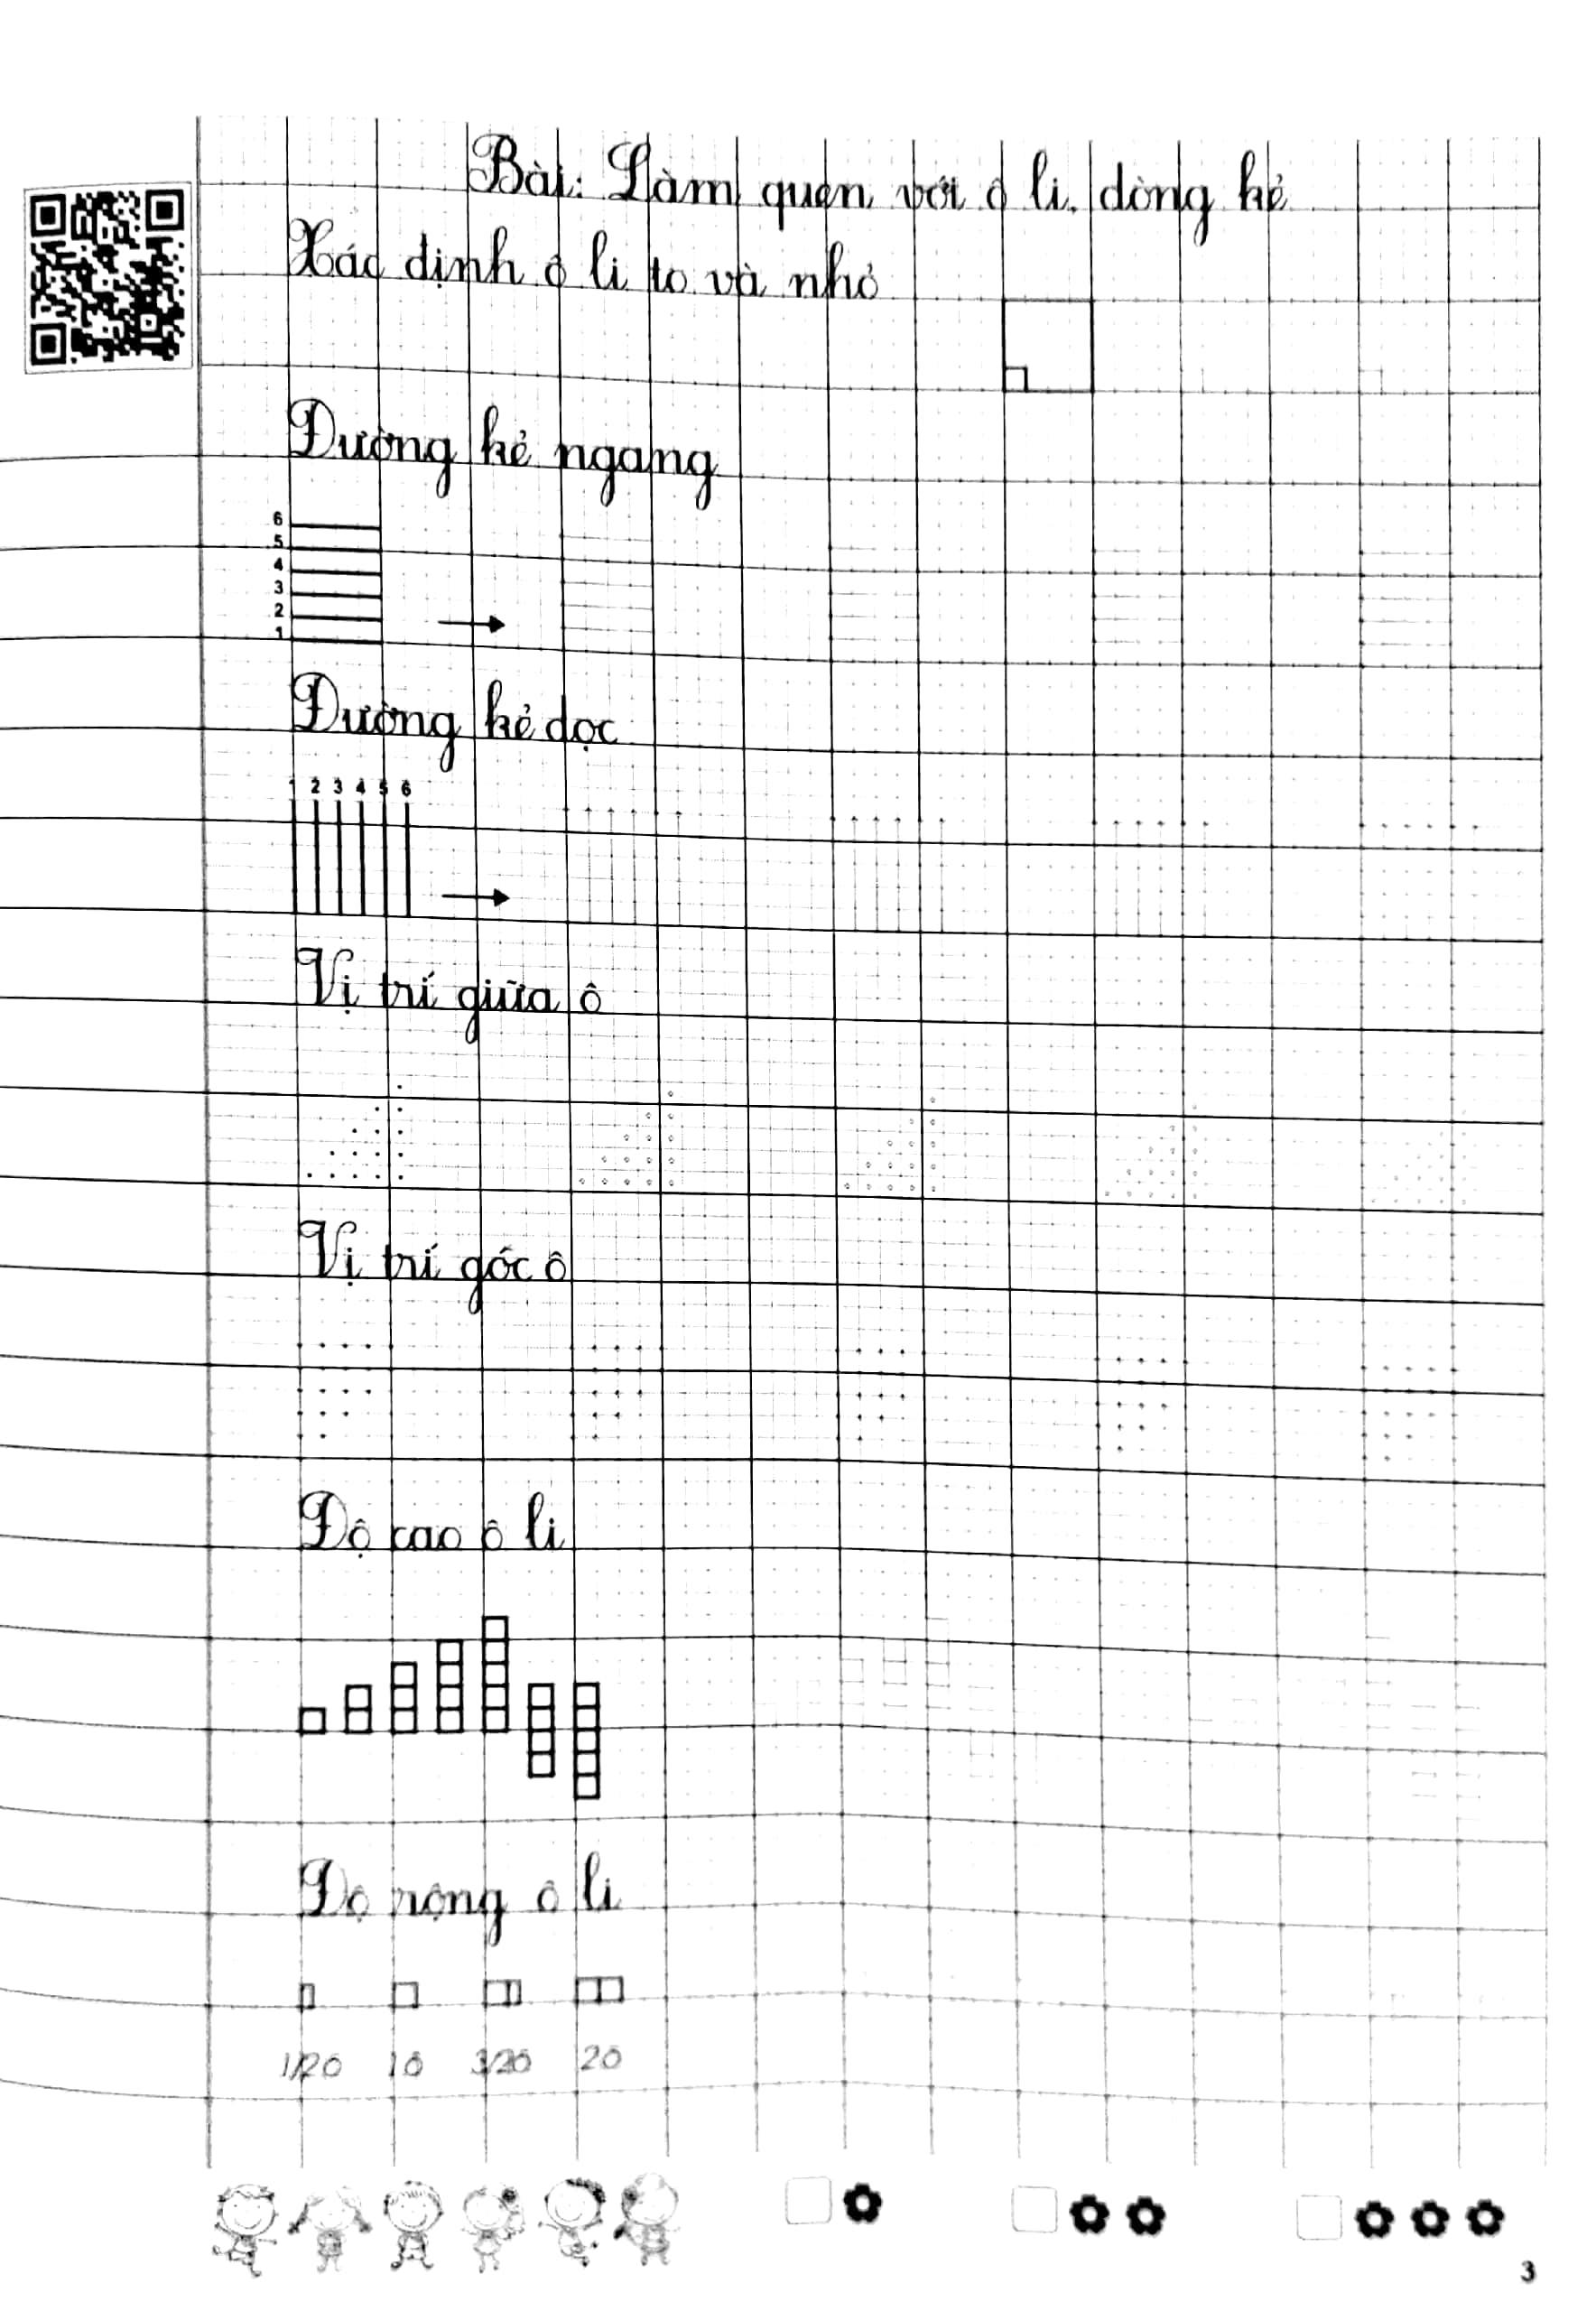 Bài: Làm quen với ô li, dòng kẻ
Xác định ô li to và nhỏ
Đường kẻ ngang
6
5
4
3
2
1
Đường kẻ dọc
1 2 3 4 5 6
Vị trí giữa ô
Vị trí góc ô
Độ cao ô li
Độ rộng ô li
1/2ô 1ô 3/2ô 2ô
3